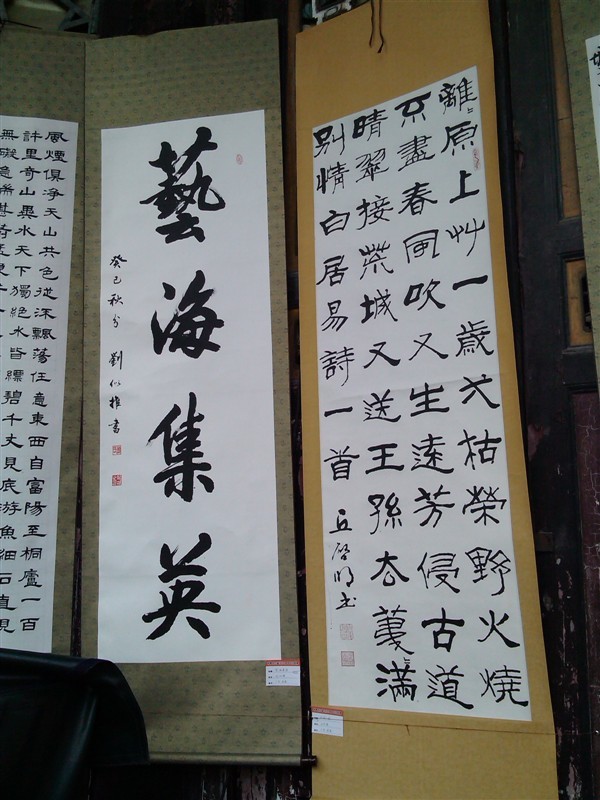 離〻原上艸一歲弌枯榮野火燒
不盡春風吹又生遠芳侵古道
晴翠接荒城又送王孫去萋〻滿
別情白居易詩一首
丘啓明书
藝海集英
癸巳秋分 劉書
風煙俱淨天山共色從流飄蕩任意東西自富陽至桐廬一百
許里奇山異水天下獨絕水皆縹碧千丈見底游魚細石直視
無礙急湍甚箭猛